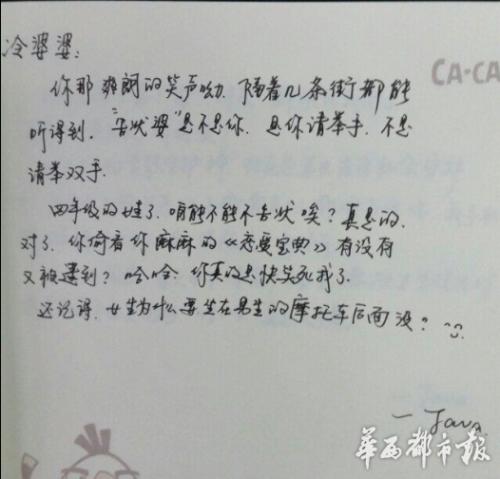 冷婆婆:
CA-CA
你那爽朗的笑声呦.隔着几条街都能
听得到.“告状婆”是不是你.是你请举手.不是
请举双手.
四年级的娃了.咱能不能不告状唉?真是的.
对了.你偷看你麻麻的《恋爱宝典》有没有
又被逮到?哈哈.你真的是快笑死我了.
还记得.女生为什么要坐在男生的摩托车后面没?
— Java
华西都市报